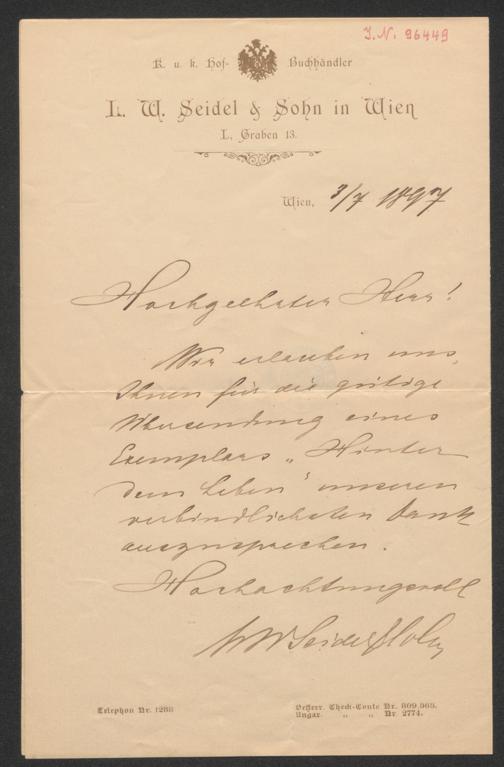 I.N. 96449
K. u. k. Hof- Buchhändler
L. W. Seidel & Sohn in Wien
I., Graben 13.
Wien, 3/7 1897
Hochgeehrter Herr!
Wir erlauben uns,
Ihnen für die gütige
Übersendung eines
Exemplars „Hinter
dem Leben" unseren
verbindlichsten Dank
auszusprechen.
Hochachtungsvoll
LW Seidel & Sohn
Telephon Nr. 1288
Oesterr. Check-Conto Nr. 809.065.
Ungar. „ „ Nr. 2774.